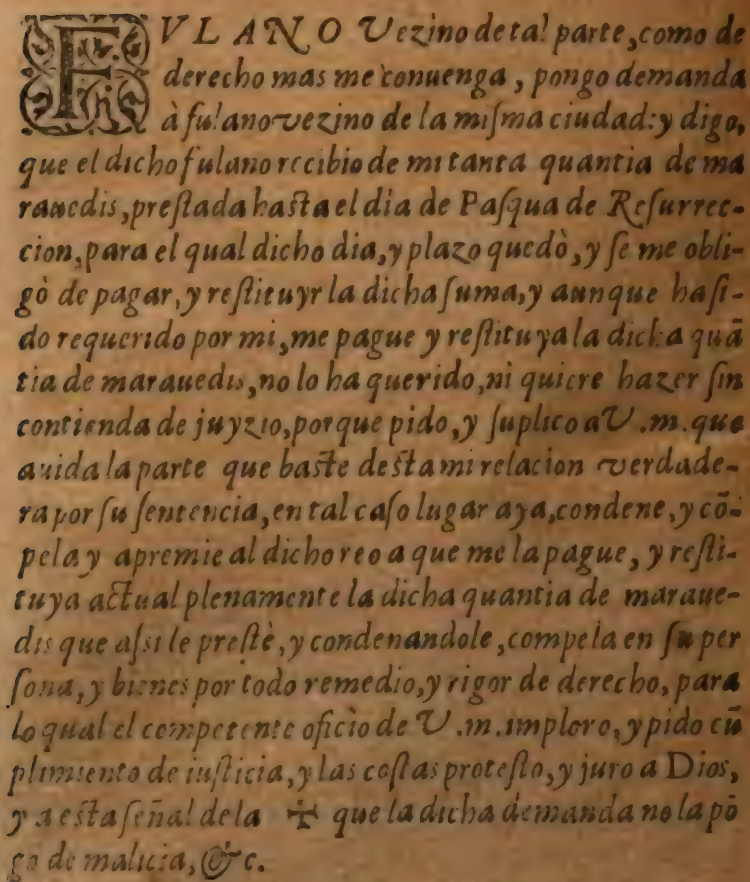 FVLANO Vezino de tal parte, como de
derecho mas me conuenga, pongo demanda
à fulano vezino de la misma ciudad: y digo,
que el dicho fulano recibio de mi tanta quantia de ma
rauedis, prestada hasta el dia de Pasqua de Resurrec-
cion, para el qual dicho dia, y plazo quedò, y se me obli-
gò de pagar, y restituyr la dicha suma, y aunque ha si-
do requerido por mi, me pague y restituya la dicha quã
tia de marauedis, no lo ha querido, ni quiere hazer sin
contienda de juyzio, porque pido, y suplico a V.m. que
auida la parte que baste desta mi relacion verdade-
ra por su sentencia, en tal caso lugar aya, condene, y cõ-
pela y apremie al dicho reo a que me la pague, y resti-
tuya actual plenamente la dicha quantia de maraue-
dis que assi le prestè, y condenandole, compela en su per
sona, y bienes por todo remedio, y rigor de derecho, para
lo qual el competente oficio de V.m. imploro, y pido cũ
plimiento de iusticia, y las costas protesto, y juro a Dios,
y a esta señal de la ✠ que la dicha demanda no la põ
go de malicia, &c.